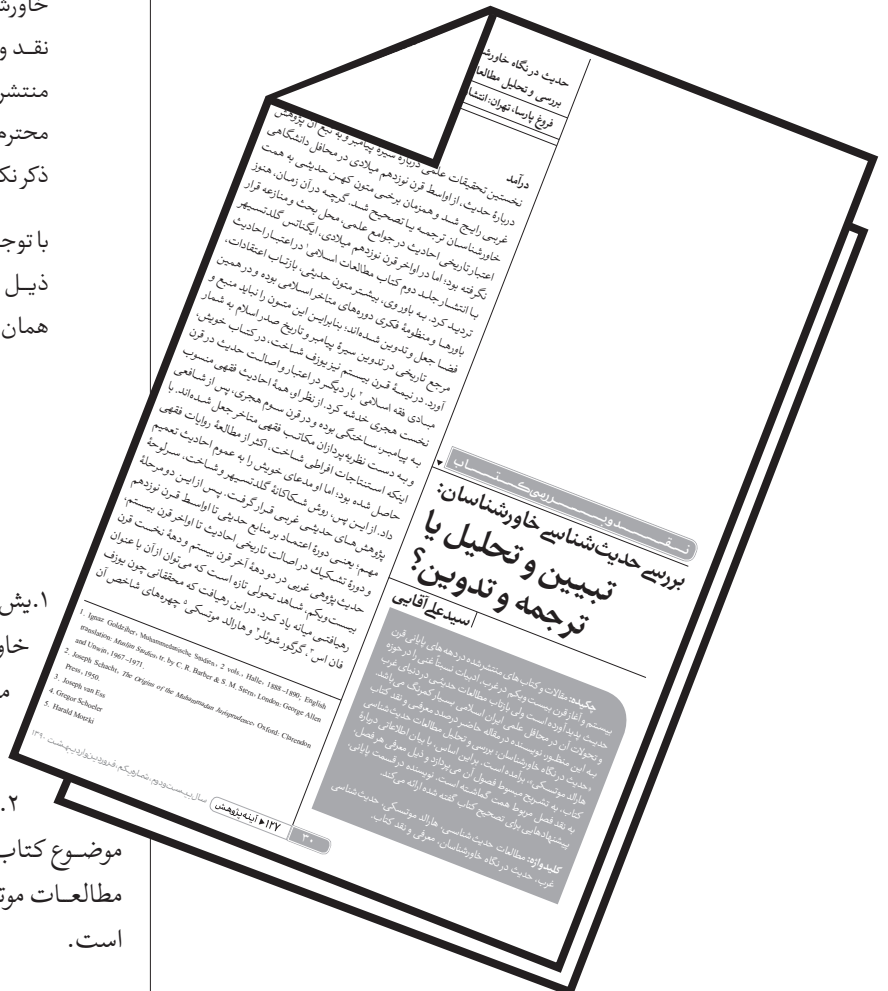 خاورش
نقد و
منتشر
محترم
ذکر نک
با توجه
ذیل
همان
۱. پش
خاو
م
۲.
موضوع کتاب
مطالعات موت
است.
حدیث در نگاه خاورش
بررسی و تحلیل مطالعا
فروغ پارسا، تهران: انتشا
درآمد
نخستین تحقیقات علمی درباره سیره پیامبر و به تبع آن پژوهش
درباره حدیث، از اواسط قرن نوزدهم میلادی در محافل دانشگاهی
غربی رایج شد و همزمان برخی متون کهن حدیثی به همت
خاورشناسان ترجمه یا تصحیح شد. گرچه در آن زمان، هنوز
اعتبار تاریخی احادیث در جوامع علمی، محل بحث و منازعه قرار
نگرفته بود؛ اما در اواخر قرن نوزدهم میلادی، ایگناتس گلدتسیهر
با انتشار جلد دوم کتاب مطالعات اسلامی۱ در اعتبار احادیث
تردید کرد. به باور وی، بیشتر متون حدیثی، بازتاب اعتقادات،
باورها و منظومهٔ فکری دوره‌های متأخر اسلامی بوده و در همین
فضا جعل و تدوین شده‌اند؛ بنابراین این متون را نباید منبع و
مرجع تاریخی در تدوین سیرهٔ پیامبر و تاریخ صدر اسلام به شمار
آورد. در نیمهٔ قرن بیستم نیز یوزف شاخت، در کتاب خویش،
مبادی فقه اسلامی۲ بار دیگر در اعتبار و اصالت حدیث در قرن
نخست هجری خدشه کرد. از نظر او، همهٔ احادیث فقهی منسوب
به پیامبر، ساختگی بوده و در قرن سوم هجری، پس از شافعی
و به دست نظریه‌پردازان مکاتب فقهی متأخر جعل شده‌اند. با
اینکه استنتاجات افراطی شاخت، اکثر از مطالعهٔ روایات فقهی
حاصل شده بود؛ اما او مدعای خویش را به عموم احادیث تعمیم
داد. از این پس، روش شکاکانهٔ گلدتسیهر و شاخت، سرلوحهٔ
پژوهش‌های حدیثی غربی قرار گرفت. پس از این دو مرحلهٔ
مهم؛ یعنی دورهٔ اعتماد بر منابع حدیثی تا اواسط قرن نوزدهم
و دورهٔ تشکیک در اصالت تاریخی احادیث تا اواخر قرن بیستم،
حدیث‌پژوهی غربی در دو دههٔ آخر قرن بیستم و دههٔ نخست قرن
بیست‌ویکم، شاهد تحولی تازه است که می‌توان از آن با عنوان
رهیافتی میانه یاد کرد. در این رهیافت که محققانی چون یوزف
فان اس۳، گرگور شولر۴ و هارالد موتسکی۵ چهره‌های شاخص آن
1. Ignaz Goldziher, Mohammedanische Studien, 2 vols., Halle, 1888-1890, English
translation: Muslim Studies, tr. by C. R. Barber & S. M. Stern, London: George Allen
and Unwin, 1967-1971.
2. Joseph Schacht, The Origins of the Muhammadan Jurisprudence, Oxford: Clarendon
Press, 1950.
3. Joseph van Ess
4. Gregor Schoeler
5. Harald Motzki
نقد و بررسی کتاب
بررسی حدیث‌شناسی خاورشناسان:
تبیین و تحلیل یا
ترجمه و تدوین؟
سیدعلی آقایی
چکیده: مقالات و کتاب‌های منتشرشده در دهه‌های پایانی قرن
بیستم و آغاز قرن بیست ویکم در غرب، ادبیات نسبتاً غنی را در حوزه
حدیث پدید آورده است ولی بازتاب مطالعات حدیثی در دنیای غرب
و تحولات آن در محافل علمی ایران اسلامی بسیار کمرنگ می‌باشد.
به این منظور، نویسنده در مقاله حاضر درصدد معرفی و نقد کتاب
«حدیث در نگاه خاورشناسان: بررسی و تحلیل مطالعات حدیث‌شناسی
هارالد موتسکی»، برآمده است. بر این اساس، با بیان اطلاعاتی درباره
کتاب، به تشریح مبسوط فصول آن می‌پردازد و ذیل معرفی هر فصل،
به نقد فصل مربوط همت گماشته است. نویسنده در قسمت پایانی،
پیشنهادهایی برای تصحیح کتاب گفته شده ارائه می‌کند.
کلیدواژه: مطالعات حدیث‌شناسی، هارالد موتسکی، حدیث‌شناسی
غرب، حدیث در نگاه خاورشناسان، معرفی و نقد کتاب.
۳۰
۱۲۷ آینه پژوهش
سال بیست‌ودوم، شماره یکم، فروردین و اردیبهشت ۱۳۹۰